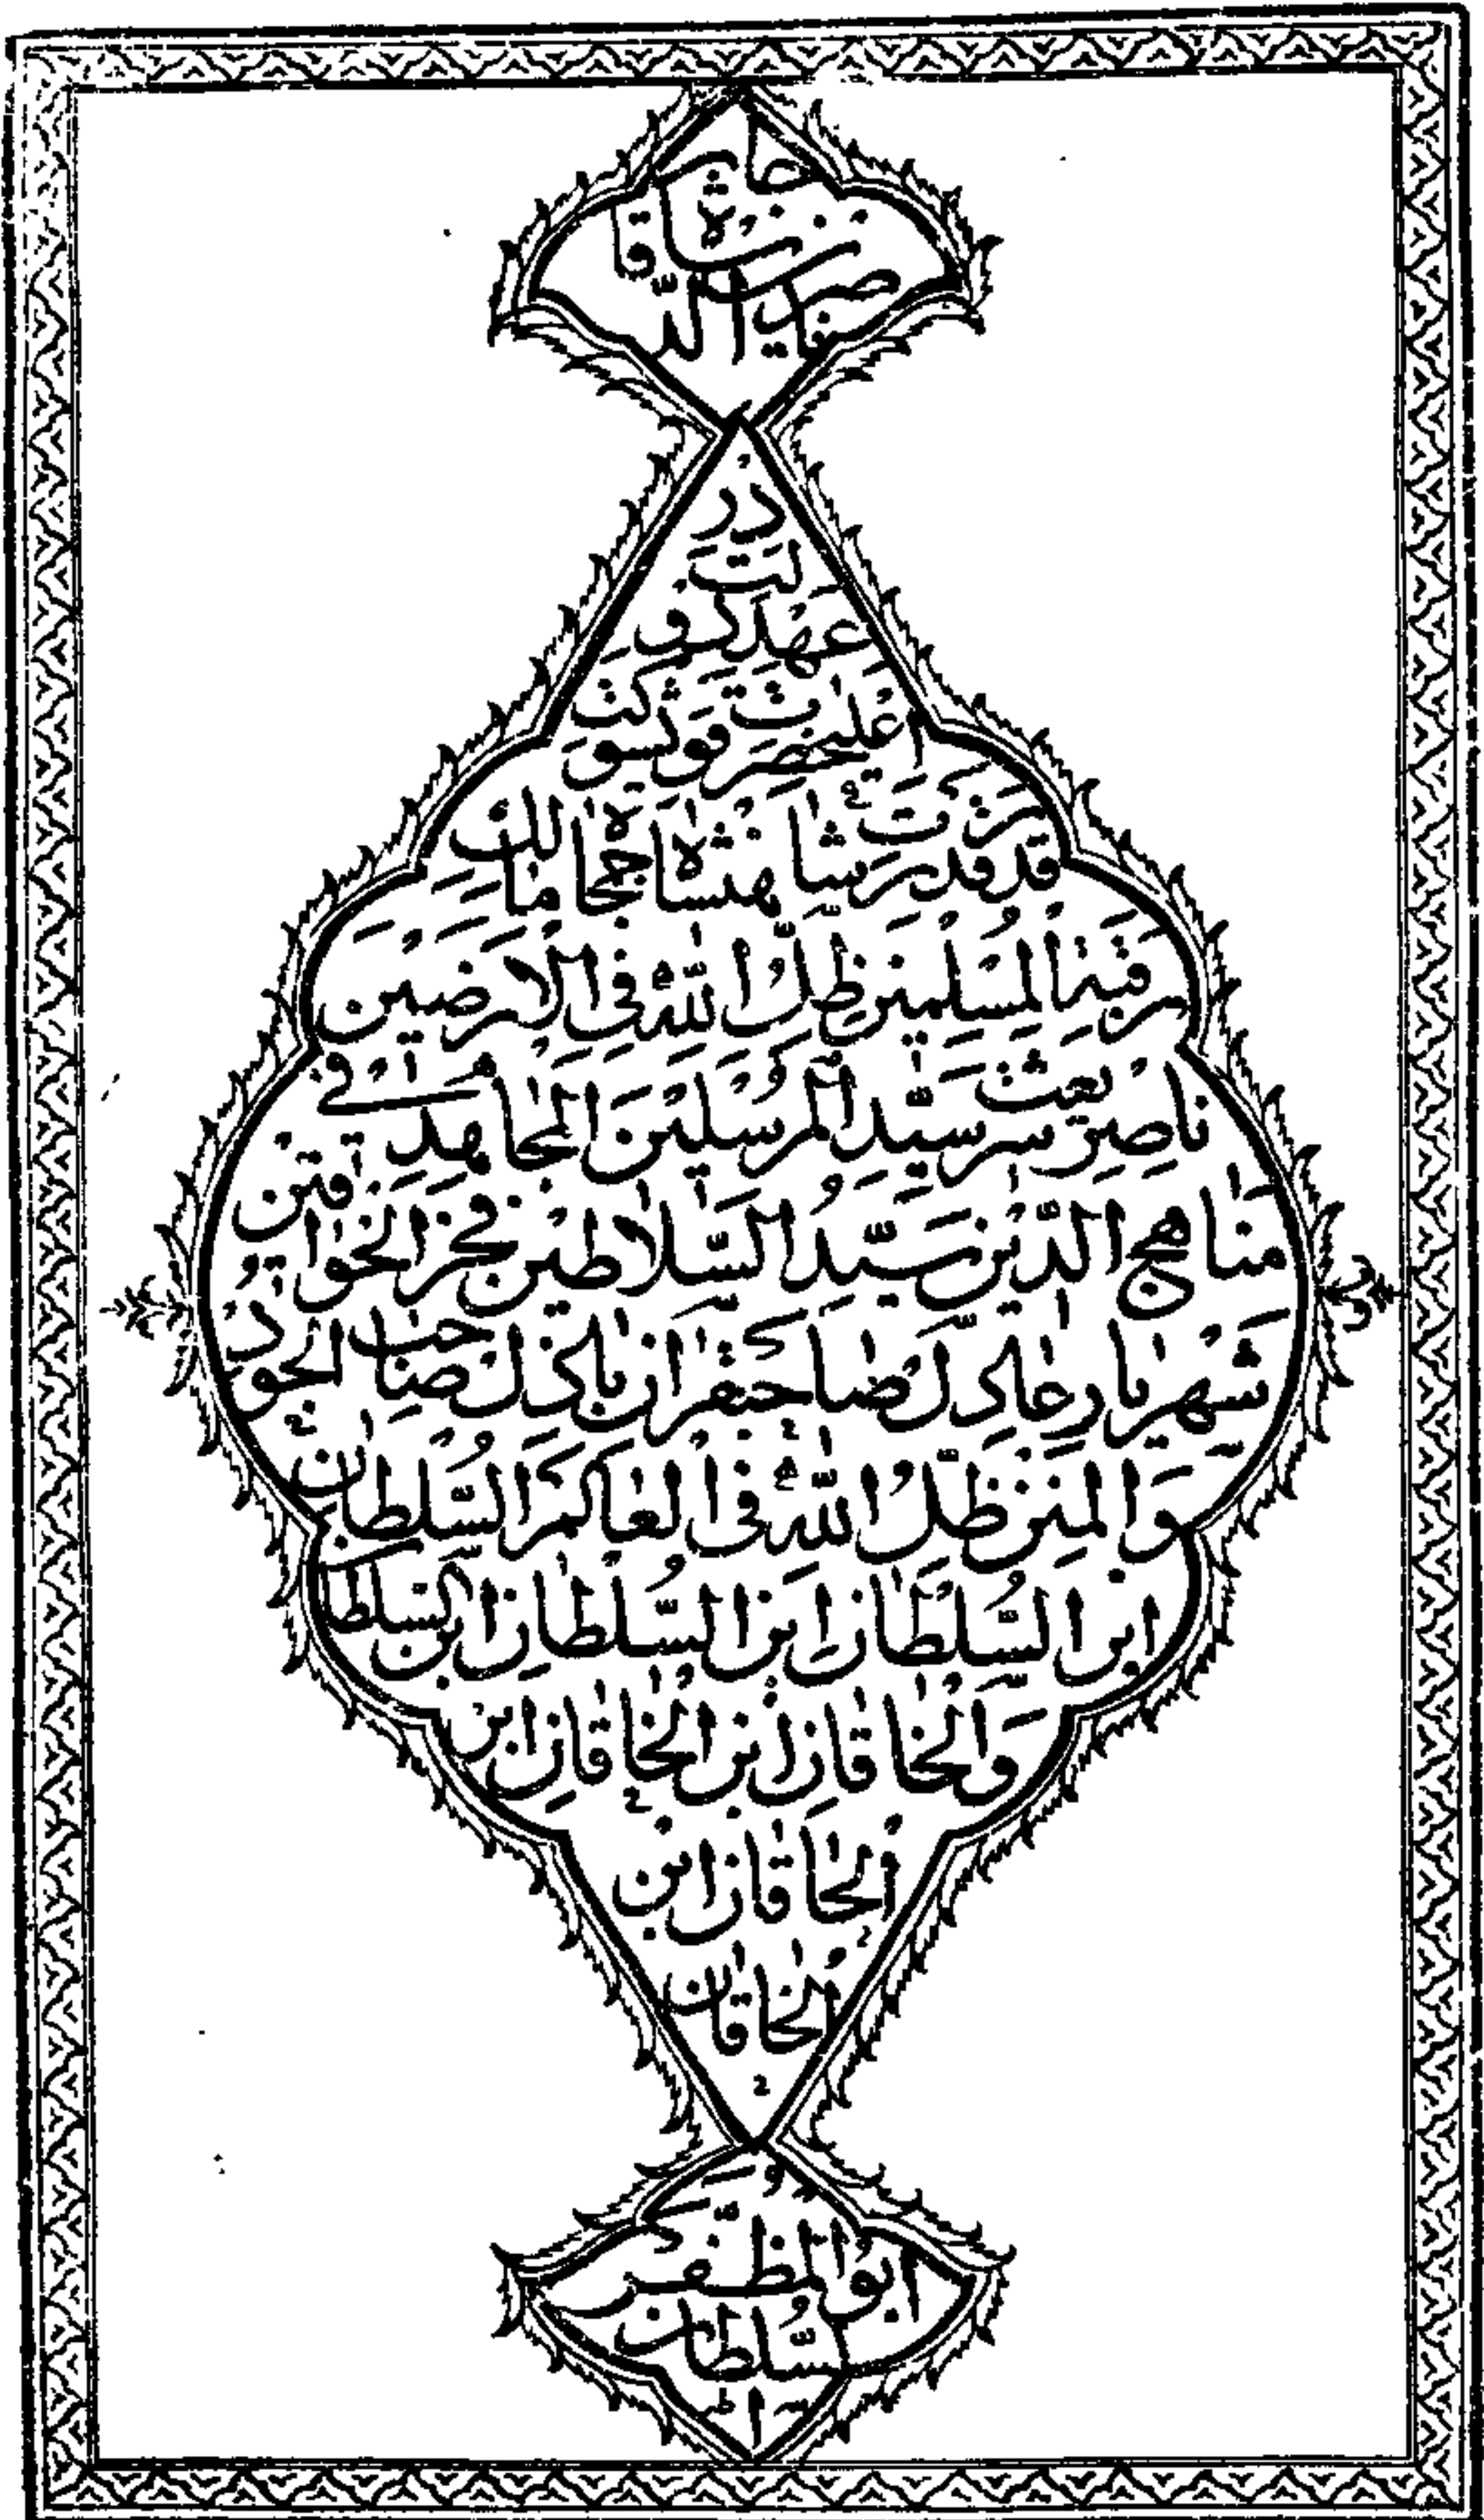 در
عهد دولت
اعلیحضرت قوی شوکت
قدر قدرت شاهنشاه جمجاه مالک
رقبة المسلمین ظل الله فی الارضین
ناصر بعثت سید المرسلین المجاهد فی
مناهج الدین سید السلاطین فخر الخواقین
شهریار عادل صاحبقران باذل صاحب الجود
و المن ظل الله فی العالم السلطان
ابن السلطان ابن السلطان ابن السلطان
والخاقان ابن الخاقان ابن
الخاقان ابن
الخاقان
ابو المظفر
السلطان